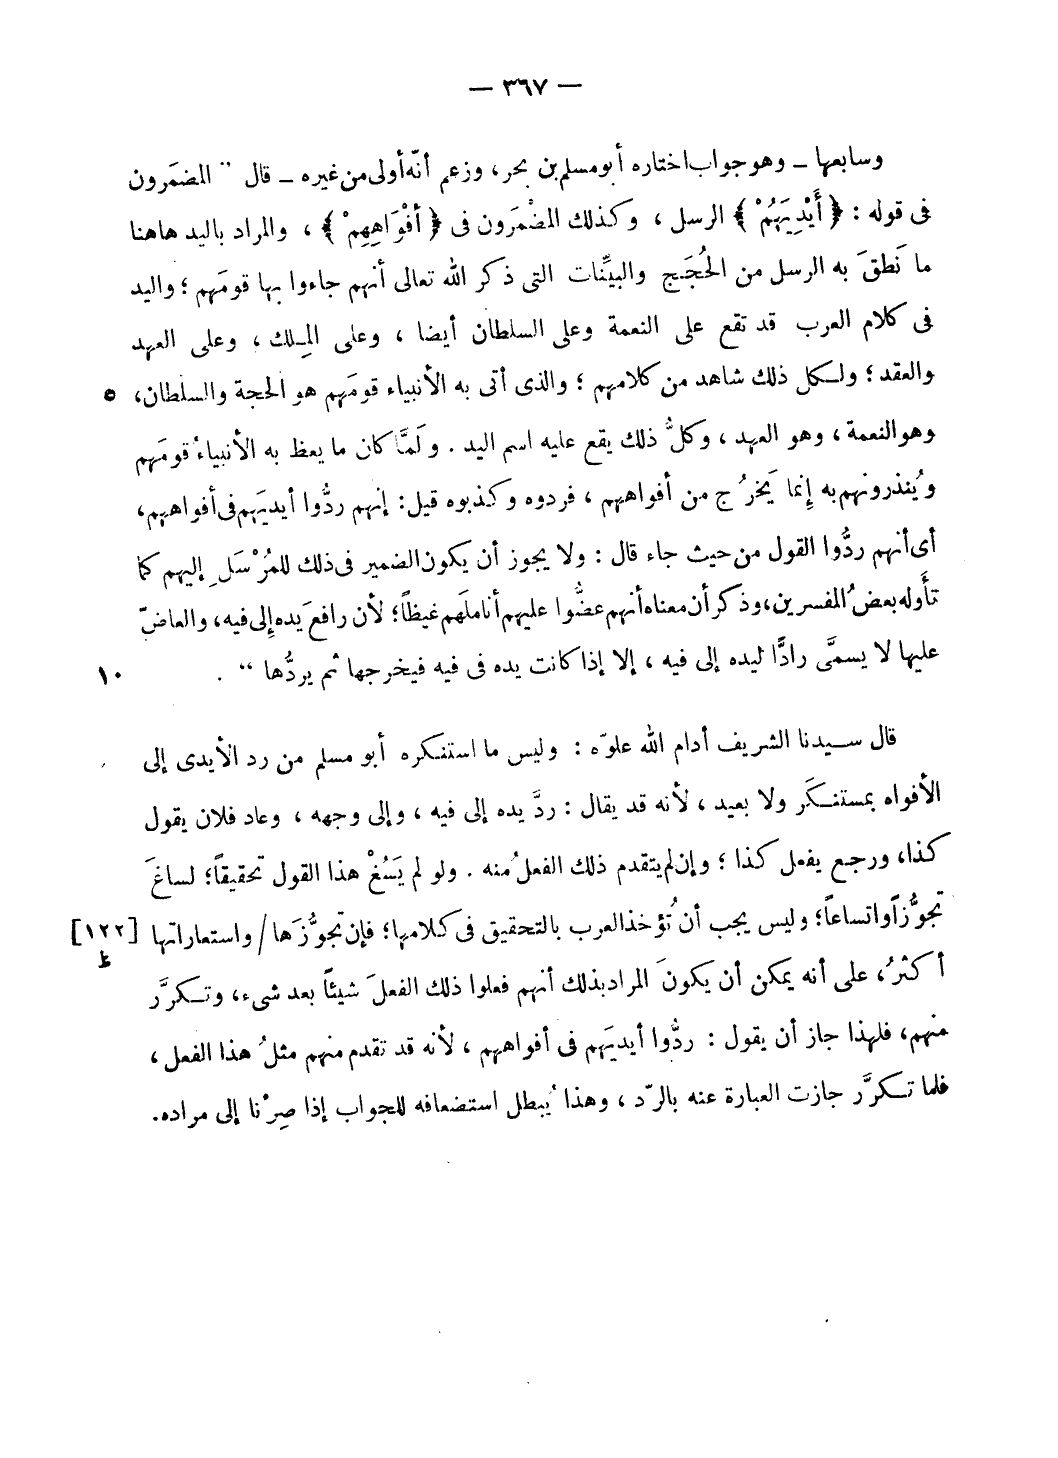 — ٣٦٧ —
وسابعها – وهو جواب اختاره أبو مسلم بن بحر، وزعم أنّه أولى من غيره – قال ”المضمَرون
فى قوله : ﴿ أَيْدِيَهُمْ ﴾ الرسل ، وكذلك المضْمَرون فى ﴿ أَفْوَاهِهِمْ ﴾ ، والمراد باليد هاهنا
ما نَطقَ به الرسل من الحُجَج والبيِّنات التى ذكر الله تعالى أنهم جاءوا بها قومَهم ؛ واليد
فى كلام العرب قد تقع على النعمة وعلى السلطان أيضا ، وعلى المِلك ، وعلى العهد
والعقد ؛ ولكل ذلك شاهد من كلامهم ؛ والذى أتى به الأنبياء قومَهم هو الحجة والسلطان، ٥
وهو النعمة ، وهو العهد ، وكلُّ ذلك يقع عليه اسم اليد . ولَمَّا كان ما يعظ به الأنبياءُ قومَهم
ويُنذرونهم به إنما يَخرُج من أفواههم ، فردوه وكذبوه قيل: إنهم ردُّوا أيديَهم فى أفواههم،
أى أنهم ردُّوا القول من حيث جاء قال : ولا يجوز أن يكون الضمير فى ذلك للمُرْسَلِ إليهم كما
تأَوله بعضُ المفسرين، وذكر أن معناه أنهم عضُّوا عليهم أناملَهم غيظاً؛ لأن رافعَ يده إِلى فيه، والعاضّ
عليها لا يسمَّى رادًّا ليده إلى فيه ، إلا إذا كانت يده فى فيه فيخرجها ثم يردُّها “ . ١٠
قال سيدنا الشريف أدام الله علوّه : وليس ما استنكره أبو مسلم من رد الأيدى إلى
الأفواه بمستنكَر ولا بعيد ، لأنه قد يقال : ردَّ يده إلى فيه ، وإلى وجهه ، وعاد فلان يقول
كذا، ورجع يفعل كذا ؛ وإن لم يتقدم ذلك الفعلُ منه . ولو لم يَسُغْ هذا القول تحقيقاً؛ لساغَ
تجوُّزاً واتساعاً؛ وليس يجب أن تُؤخذ العرب بالتحقيق فى كلامها؛ فإن تجوُّزَها / واستعاراتها [١٢٢
ظ]
أكثرُ، على أنه يمكن أن يكونَ المراد بذلك أنهم فعلوا ذلك الفعلَ شيئاً بعد شىء، وتكرَّر
منهم، فلهذا جاز أن يقول : ردُّوا أيديَهم فى أفواههم ، لأنه قد تقدم منهم مثلُ هذا الفعل ،
فلما تكرَّر جازت العبارة عنه بالرّد ، وهذا يُبطل استضعافه للجواب إذا صِرْنا إلى مراده.